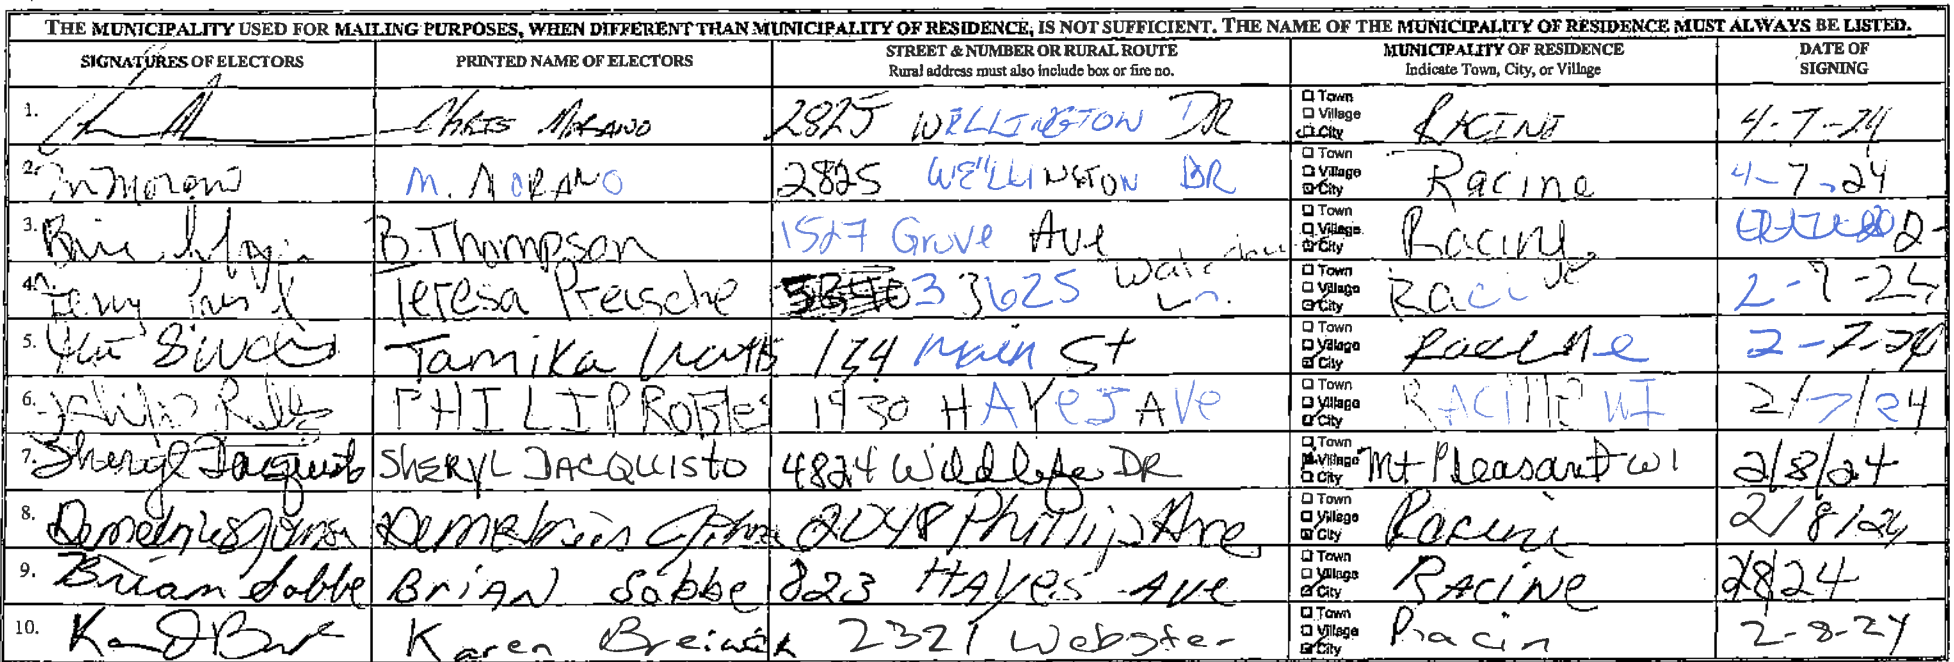 THE MUNICIPALITY USED FOR MAILING PURPOSES, WHEN DIFFERENT THAN MUNICIPALITY OF RESIDENCE, IS NOT SUFFICIENT. THE NAME OF THE MUNICIPALITY OF RESIDENCE MUST ALWAYS BE LISTED.
SIGNATURES OF ELECTORS PRINTED NAME OF ELECTORS STREET & NUMBER OR RURAL ROUTE Rural address must also include box or fire no. MUNICIPALITY OF RESIDENCE Indicate Town, City, or Village DATE OF SIGNING
1. CHRIS MORANO 2825 WELLINGTON DR Town Village City RACINE 4-7-24
2. M Morano M. MORANO 2825 WELLINGTON DR Town Village City Racine 4-7-24
3. B. Thompson 1527 Grove Ave Town Village City Racine
4. Teresa 33625 Town Village City Racine 2-7-24
5. Tamika 134 Main St Town Village City Racine 2-7-24
6. PHILIP ROBLES 1930 HAYES AVE Town Village City RACINE WI 2/7/24
7. Sheryl Jacquisto SHERYL JACQUISTO 4824 Wildlife DR Town Village City Mt Pleasant WI 2/8/24
8. 2048 Phillips Ave Town Village City Racine 2/8/24
9. Brian Sobbe BRIAN Sobbe 823 HAYES AVE Town Village City RACINE 2824
10. Karen 2321 Webster Town Village City Racin 2-8-24